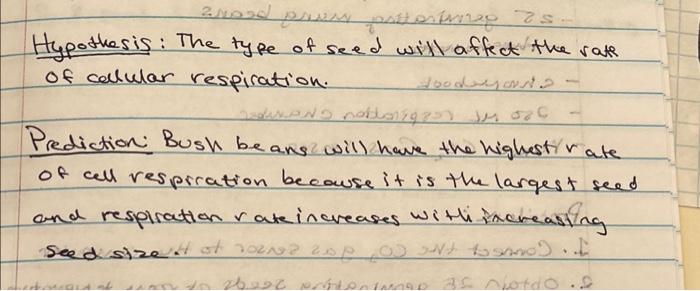 Hypothesis: The type of seed will affect the rate
of cellular respiration.
Prediction: Bush beans will have the highest rate
of cell respiration because it is the largest seed
and respiration rate increases with increasing
seed size.